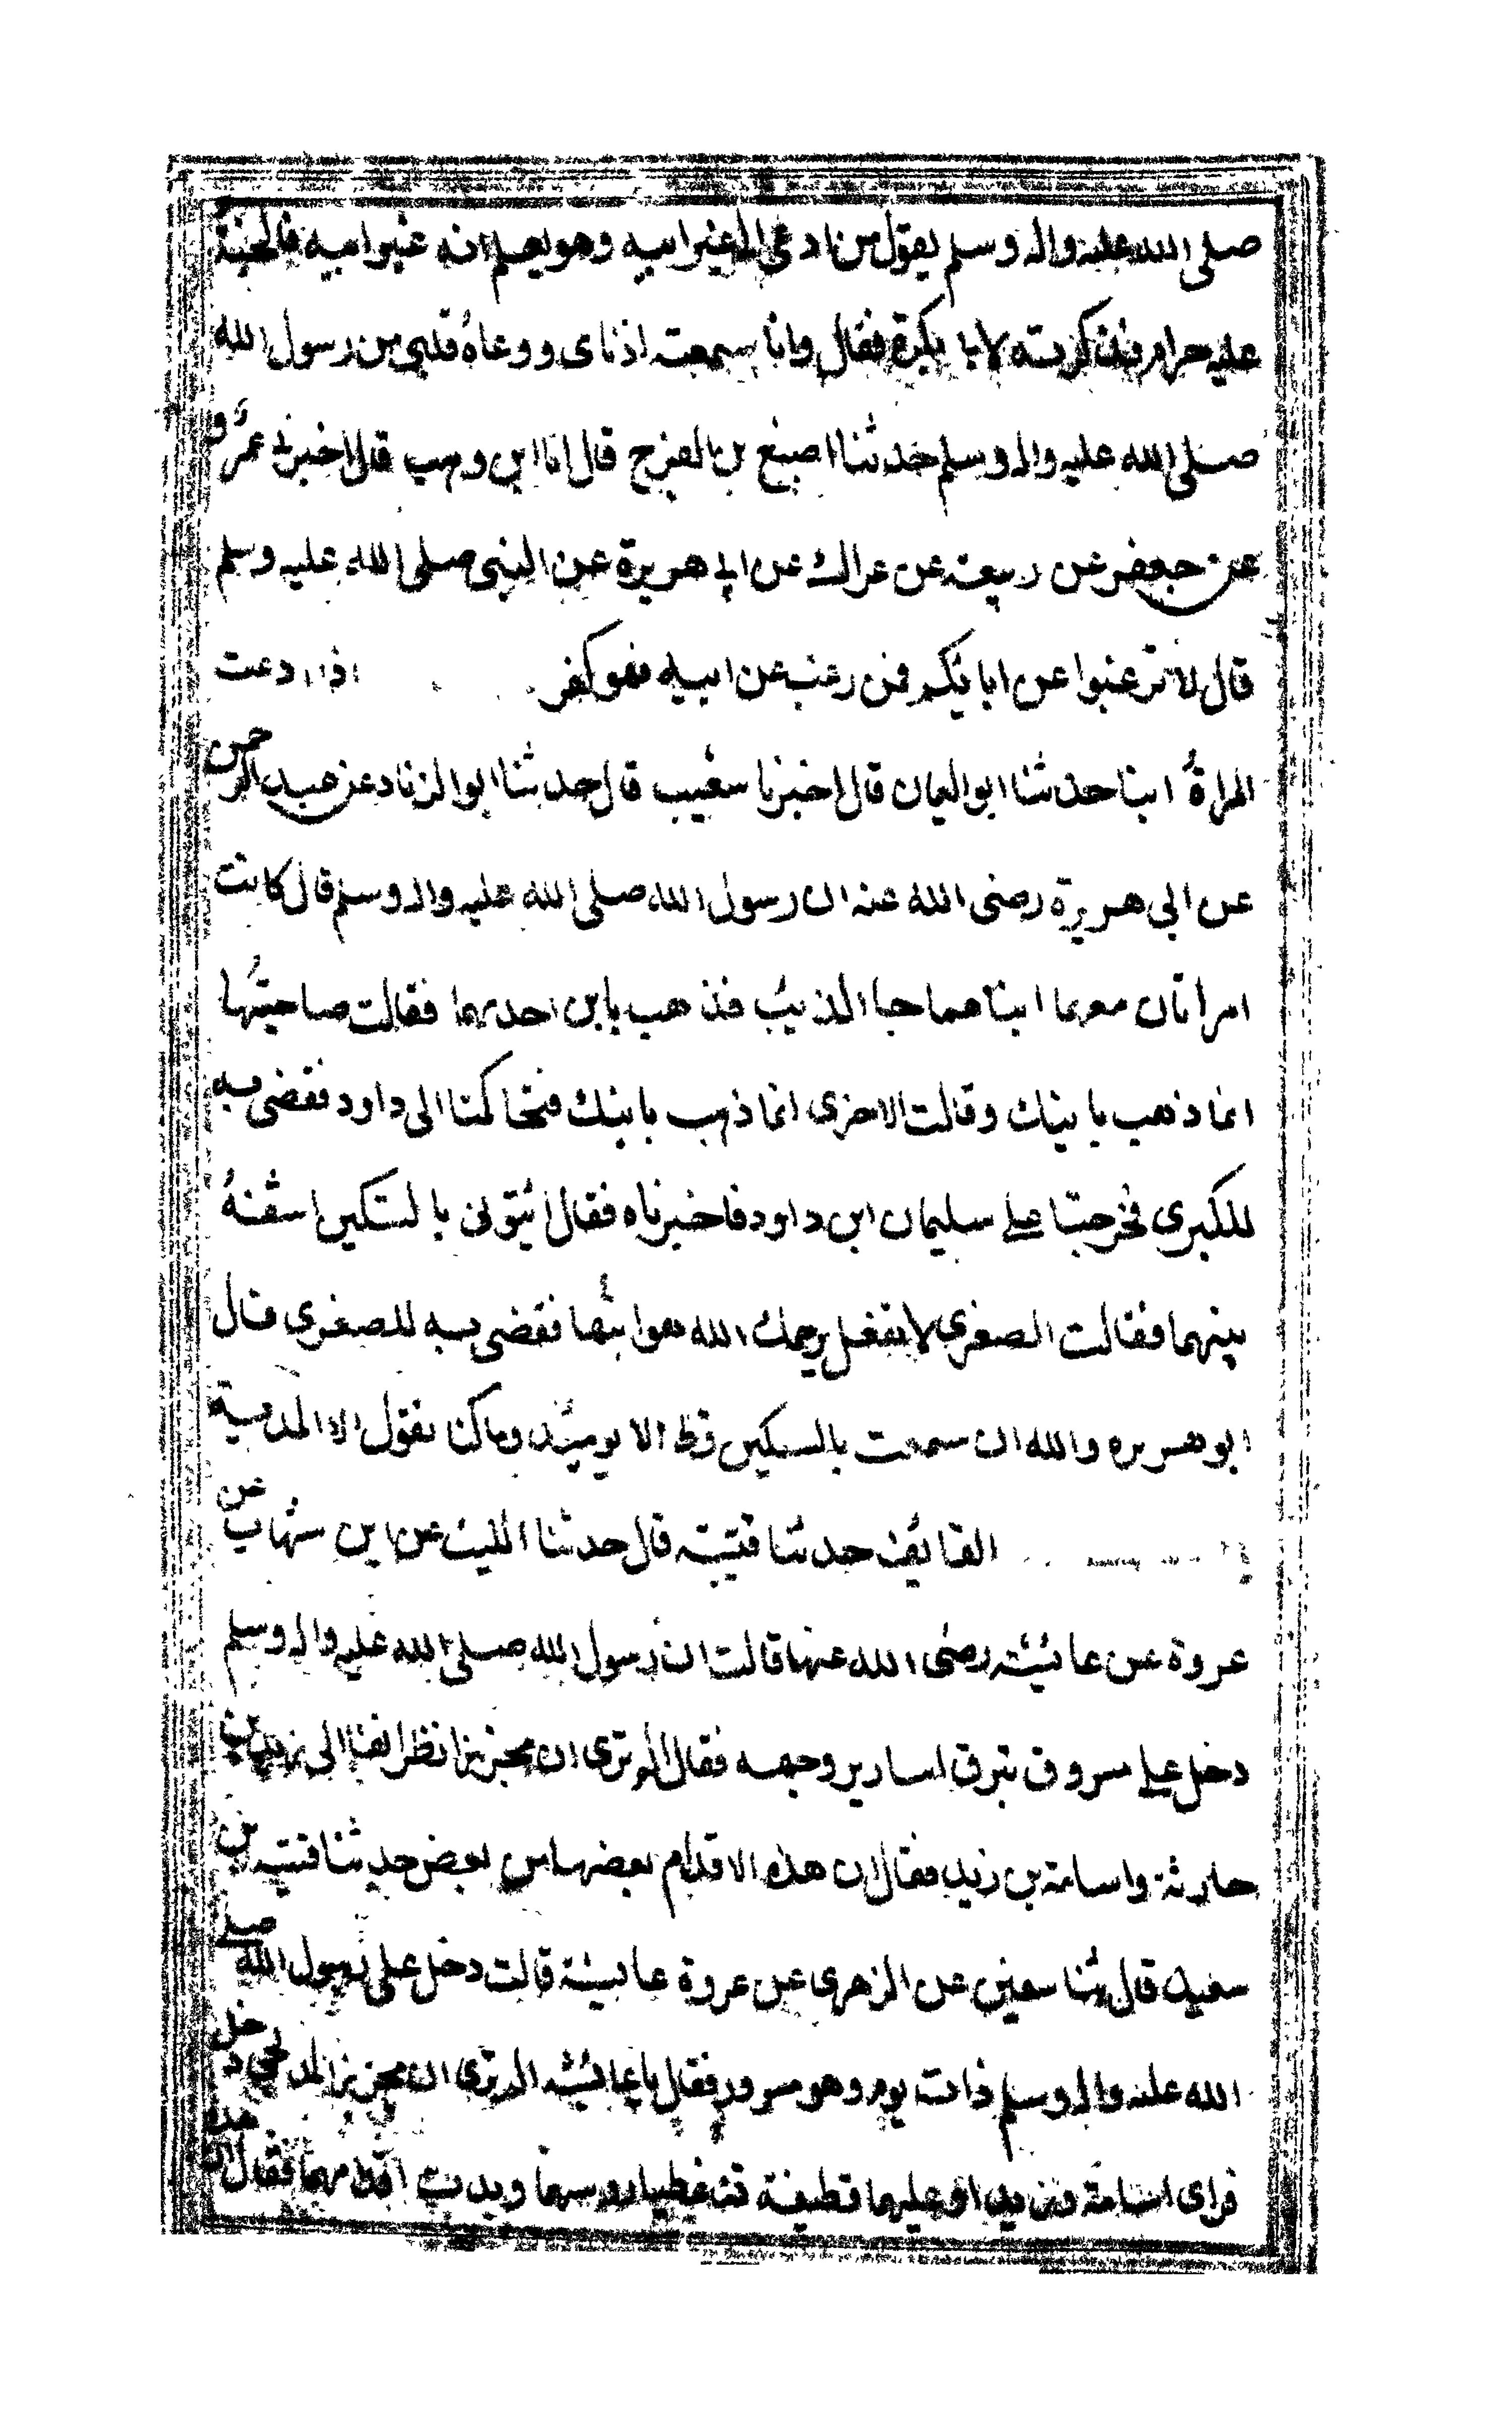 صلى الله عليه واله وسلم يقول من ادعى الى غير ابيه وهو يعلم انه غير ابيه فالجنة
عليه حرام فذكرته لابا بكرة فقال وانا سمعته اذناى ووعاه قلبى من رسول الله
صلى الله عليه واله وسلم حدثنا اصبغ بن الفرج قال انا ابن وهب قال اخبرنى عمرو
عن جعفر عن ربيعة عن عراك عن ابى هريرة عن النبى صلى الله عليه وسلم
قال لا ترغبوا عن ابائكم فمن رغب عن ابيه فهو كفر اذا ادعت
المراةُ ابنا حدثنا ابو اليمان قال اخبرنا شعيب قال حدثنا ابو الزناد عن عبد الرحمن
عن ابى هريرة رضى الله عنه ان رسول الله صلى الله عليه واله وسلم قال كانت
امراتان معهما ابناهما جا الذئب فذهب بابن احدىهما فقالت صاحبتُها
انما ذهب بابنك وقالت الاخرى انما ذهب بابنك فتحاكمتا الى داود فقضى به
للكبرى فخرجتا على سليمان ابن داود فاخبرتاه فقال ائتونى بالسكين اشقهُ
بينهما فقالت الصغرى لا تفعل يرحمك الله هو ابنها فقضى به للصغرى قال
ابو هريره والله ان سمعت بالسكين قط الا يومئذ وما كنا نقول الا المدية
القائف حدثنا قتيبة قال حدثنا الليث عن ابن شهاب عن
عروة عن عائشة رضى الله عنها قالت ان رسول الله صلى الله عليه واله وسلم
دخل على مسرو ق تبرق اسارير وجهه فقال الم ترى ان مجززا نظر انفا الى زيد بن
حارثة واسامة بن زيد فقال ان هذه الاقدام بعضها من بعض حدثنا قتيبه بن
سعيد قال ثنا سفين عن الزهرى عن عروة عايشة قالت دخل على رسول الله صلى
الله عليه واله وسلم ذات يوم وهو مسرور فقال يا عائشه الم ترى ان مجززا المدلجى دخل
فراى اسامة وزيدا وعليهما قطيفة قد غطيا روسهما وبدت اقدامهما فقال ان هذه